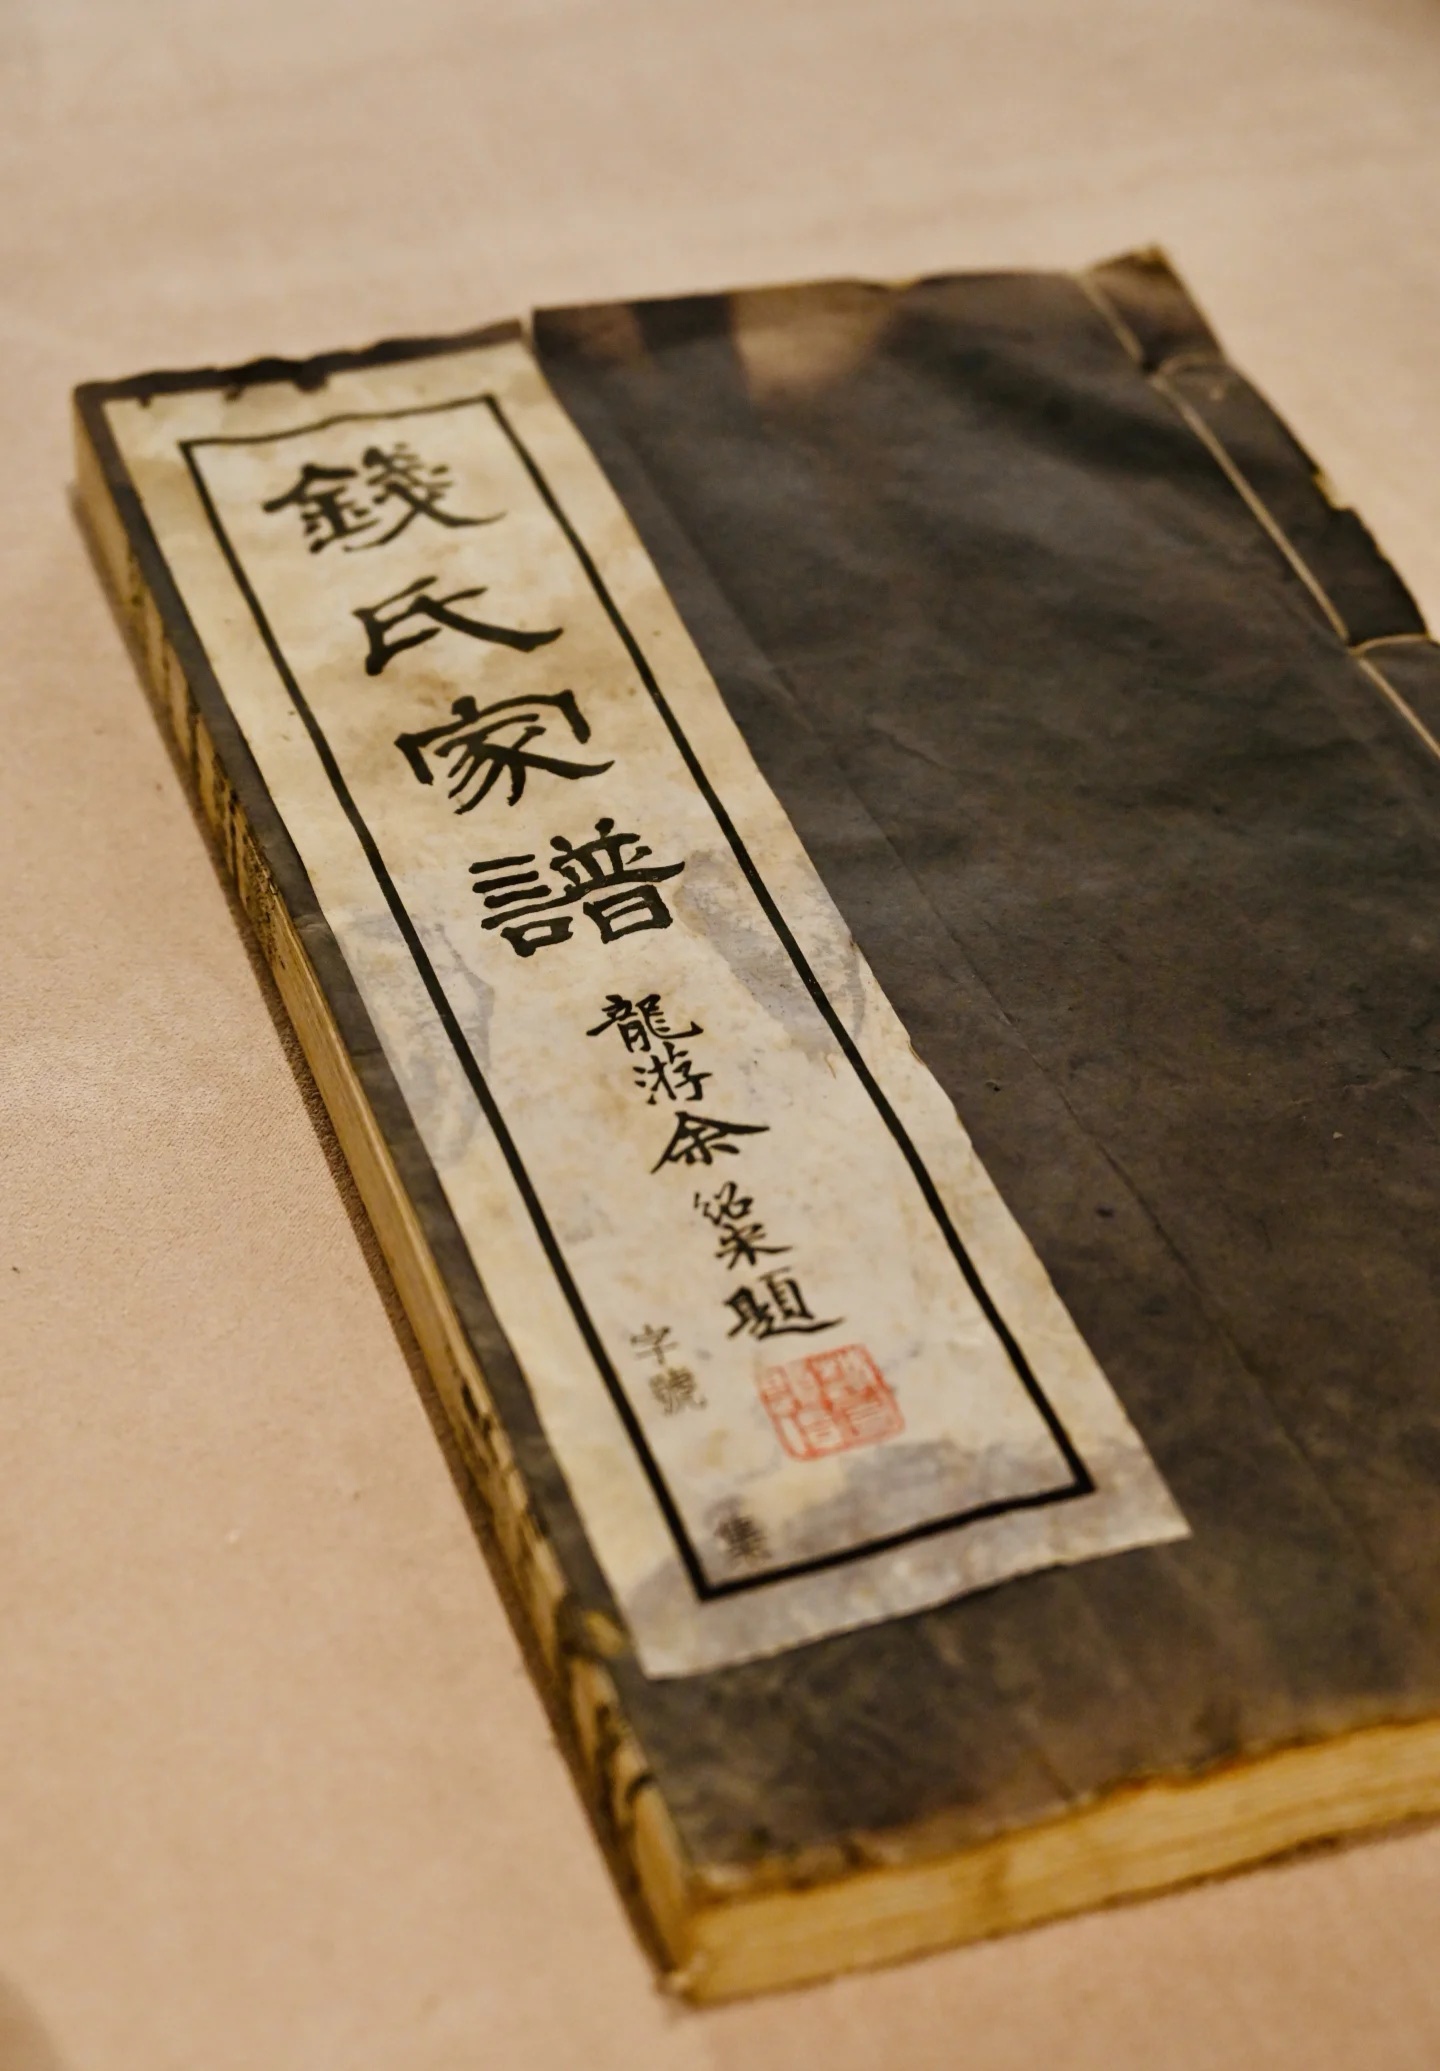 錢氏家譜
龍游余紹宋題
字號
集